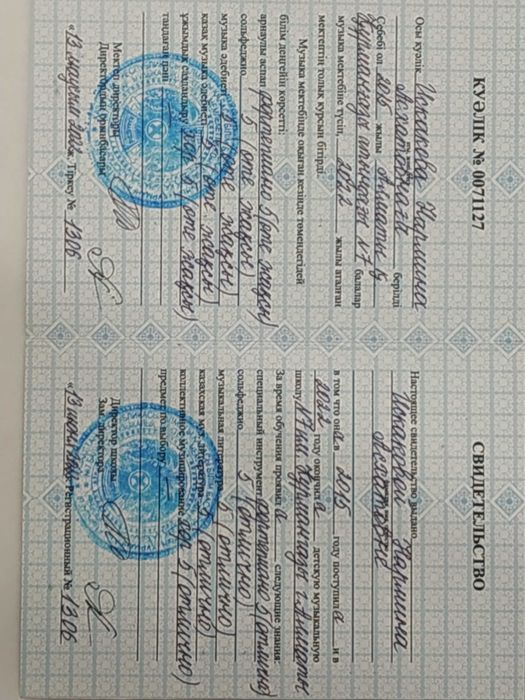 КУӘЛІК № 0071127
Осы куәлік Искакова Нармина
Ахатовнаға берілді
Себебі ол 2015 жылы Алматы қ
Құрманғазы атындағы №7 балалар
музыка мектебіне түсіп, 2022 жылы аталған
мектептің толық курсын бітірді.
Музыка мектебінде оқыған кезінде төмендегідей
білім деңгейін көрсетті:
арнаулы аспап фортепиано 5 (өте жақсы)
сольфеджио 5 (өте жақсы)
музыка әдебиеті 5 (өте жақсы)
қазақ музыка әдебиеті 5 (өте жақсы)
ұжымдық сазханалау хор 5 (өте жақсы)
таңдаған пән
Мектеп директоры
Директордың орынбасары
Тіркеу № 1306
СВИДЕТЕЛЬСТВО
Настоящее свидетельство выдано
Искаковой Нармина
Ахатовне
в том что она в 2015 году поступила и в
2022 году окончила детскую музыкальную
школу №7 им Курмангазы г. Алматы
За время обучения проявила следующие знания:
специальный инструмент фортепиано 5 (отлично)
сольфеджио 5 (отлично)
музыкальная литература 5 (отлично)
казахская муз. литература 5 (отлично)
коллективное музицирование хор 5 (отлично)
предмет по выбору
Директор школы
Зам. директора
Регистрационный № 1306